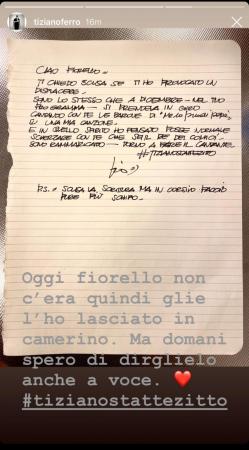 tizianoferro 16m
CIAO FIORELLO -
TI CHIEDO SCUSA SE TI HO PROVOCATO UN
DISPIACERE -
SONO LO STESSO CHE A DICEMBRE - NEL TUO
PROGRAMMA - SI PRENDEVA IN GIRO
CANTANDO CON TE LE PAROLE DI
DI UNA MIA CANZONE -
E IN QUELLO SPIRITO HO PENSATO FOSSE NORMALE
SCHERZARE CON TE CHE SEI IL RE DEI COMICI -
SONO RAMMARICATO - TORNO A FARE IL CANTANTE
#TIZIANOSTATTEZITTO
P.S. SCUSA LA SCRITTURA MA IN CORSIVO FACCIO
PURE PIÙ SCHIFO -
Oggi fiorello non
c'era quindi glie
l'ho lasciato in
camerino. Ma domani
spero di dirglielo
anche a voce. ❤️
#tizianostattezitto